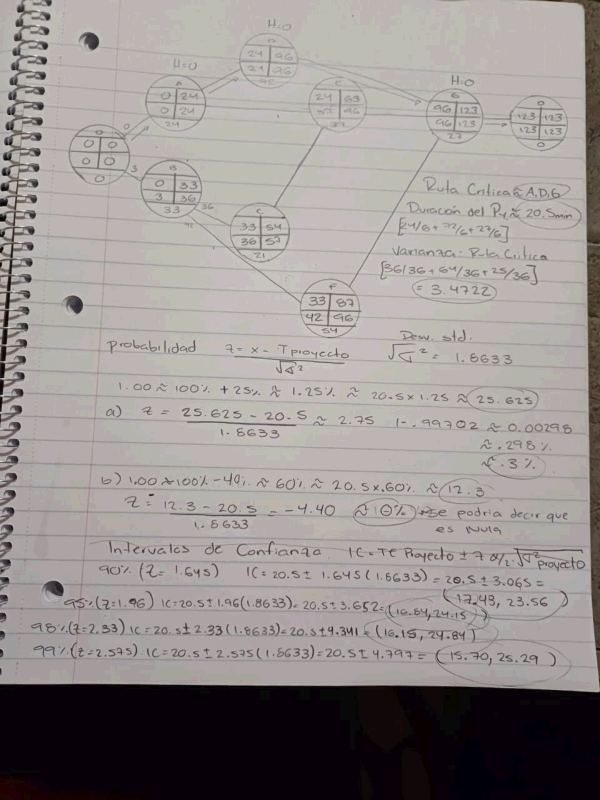 H=0
D
24 96
24 96
H=0
A
0 24
0 24
24
E
24 63
96
H=0
G
96 123
96 123
27
0
123 123
123 123
0
0
0 0
0 0
0
0
3
B
0 33
3 36
33
36
C
33 54
36 57
21
F
33 87
42 96
54
Ruta Critica ≈ A,D,G
Duración del Py ≈ 20.5mm
[24/6 + 72/6 + 27/6]
Varianza: Ruta Critica
[36/36 + 64/36 + 25/36]
= 3.4722
Desv. std.
√σ² = 1.8633
Probabilidad Z = x - T proyecto
√σ²
1.00 ≈ 100% + 25% ≈ 1.25% ≈ 20.5 x 1.25 ≈ 25.625
a) Z = 25.625 - 20.5 ≈ 2.75 1-.99702 ≈ 0.00298
1.8633
≈ .298%
≈ .3%
b) 1.00 ≈ 100% - 40% ≈ 60% ≈ 20.5 x .60% ≈ 12.3
Z = 12.3 - 20.5 = -4.40 ≈ 0% se podria decir que
1.8633
es Nula
Intervalos de Confianza. IC = TE Proyecto ± Z α/2 · √σ² proyecto
90% (Z = 1.645) IC = 20.5 ± 1.645 (1.8633) = 20.5 ± 3.065 =
(17.43, 23.56)
95% (Z=1.96) IC = 20.5 ± 1.96 (1.8633) = 20.5 ± 3.652 = (16.84, 24.15)
98% (Z=2.33) IC = 20.5 ± 2.33 (1.8633) = 20.5 ± 4.341 = (16.15, 24.84)
99% (Z = 2.575) IC = 20.5 ± 2.575 (1.8633) = 20.5 ± 4.797 = (15.70, 25.29)